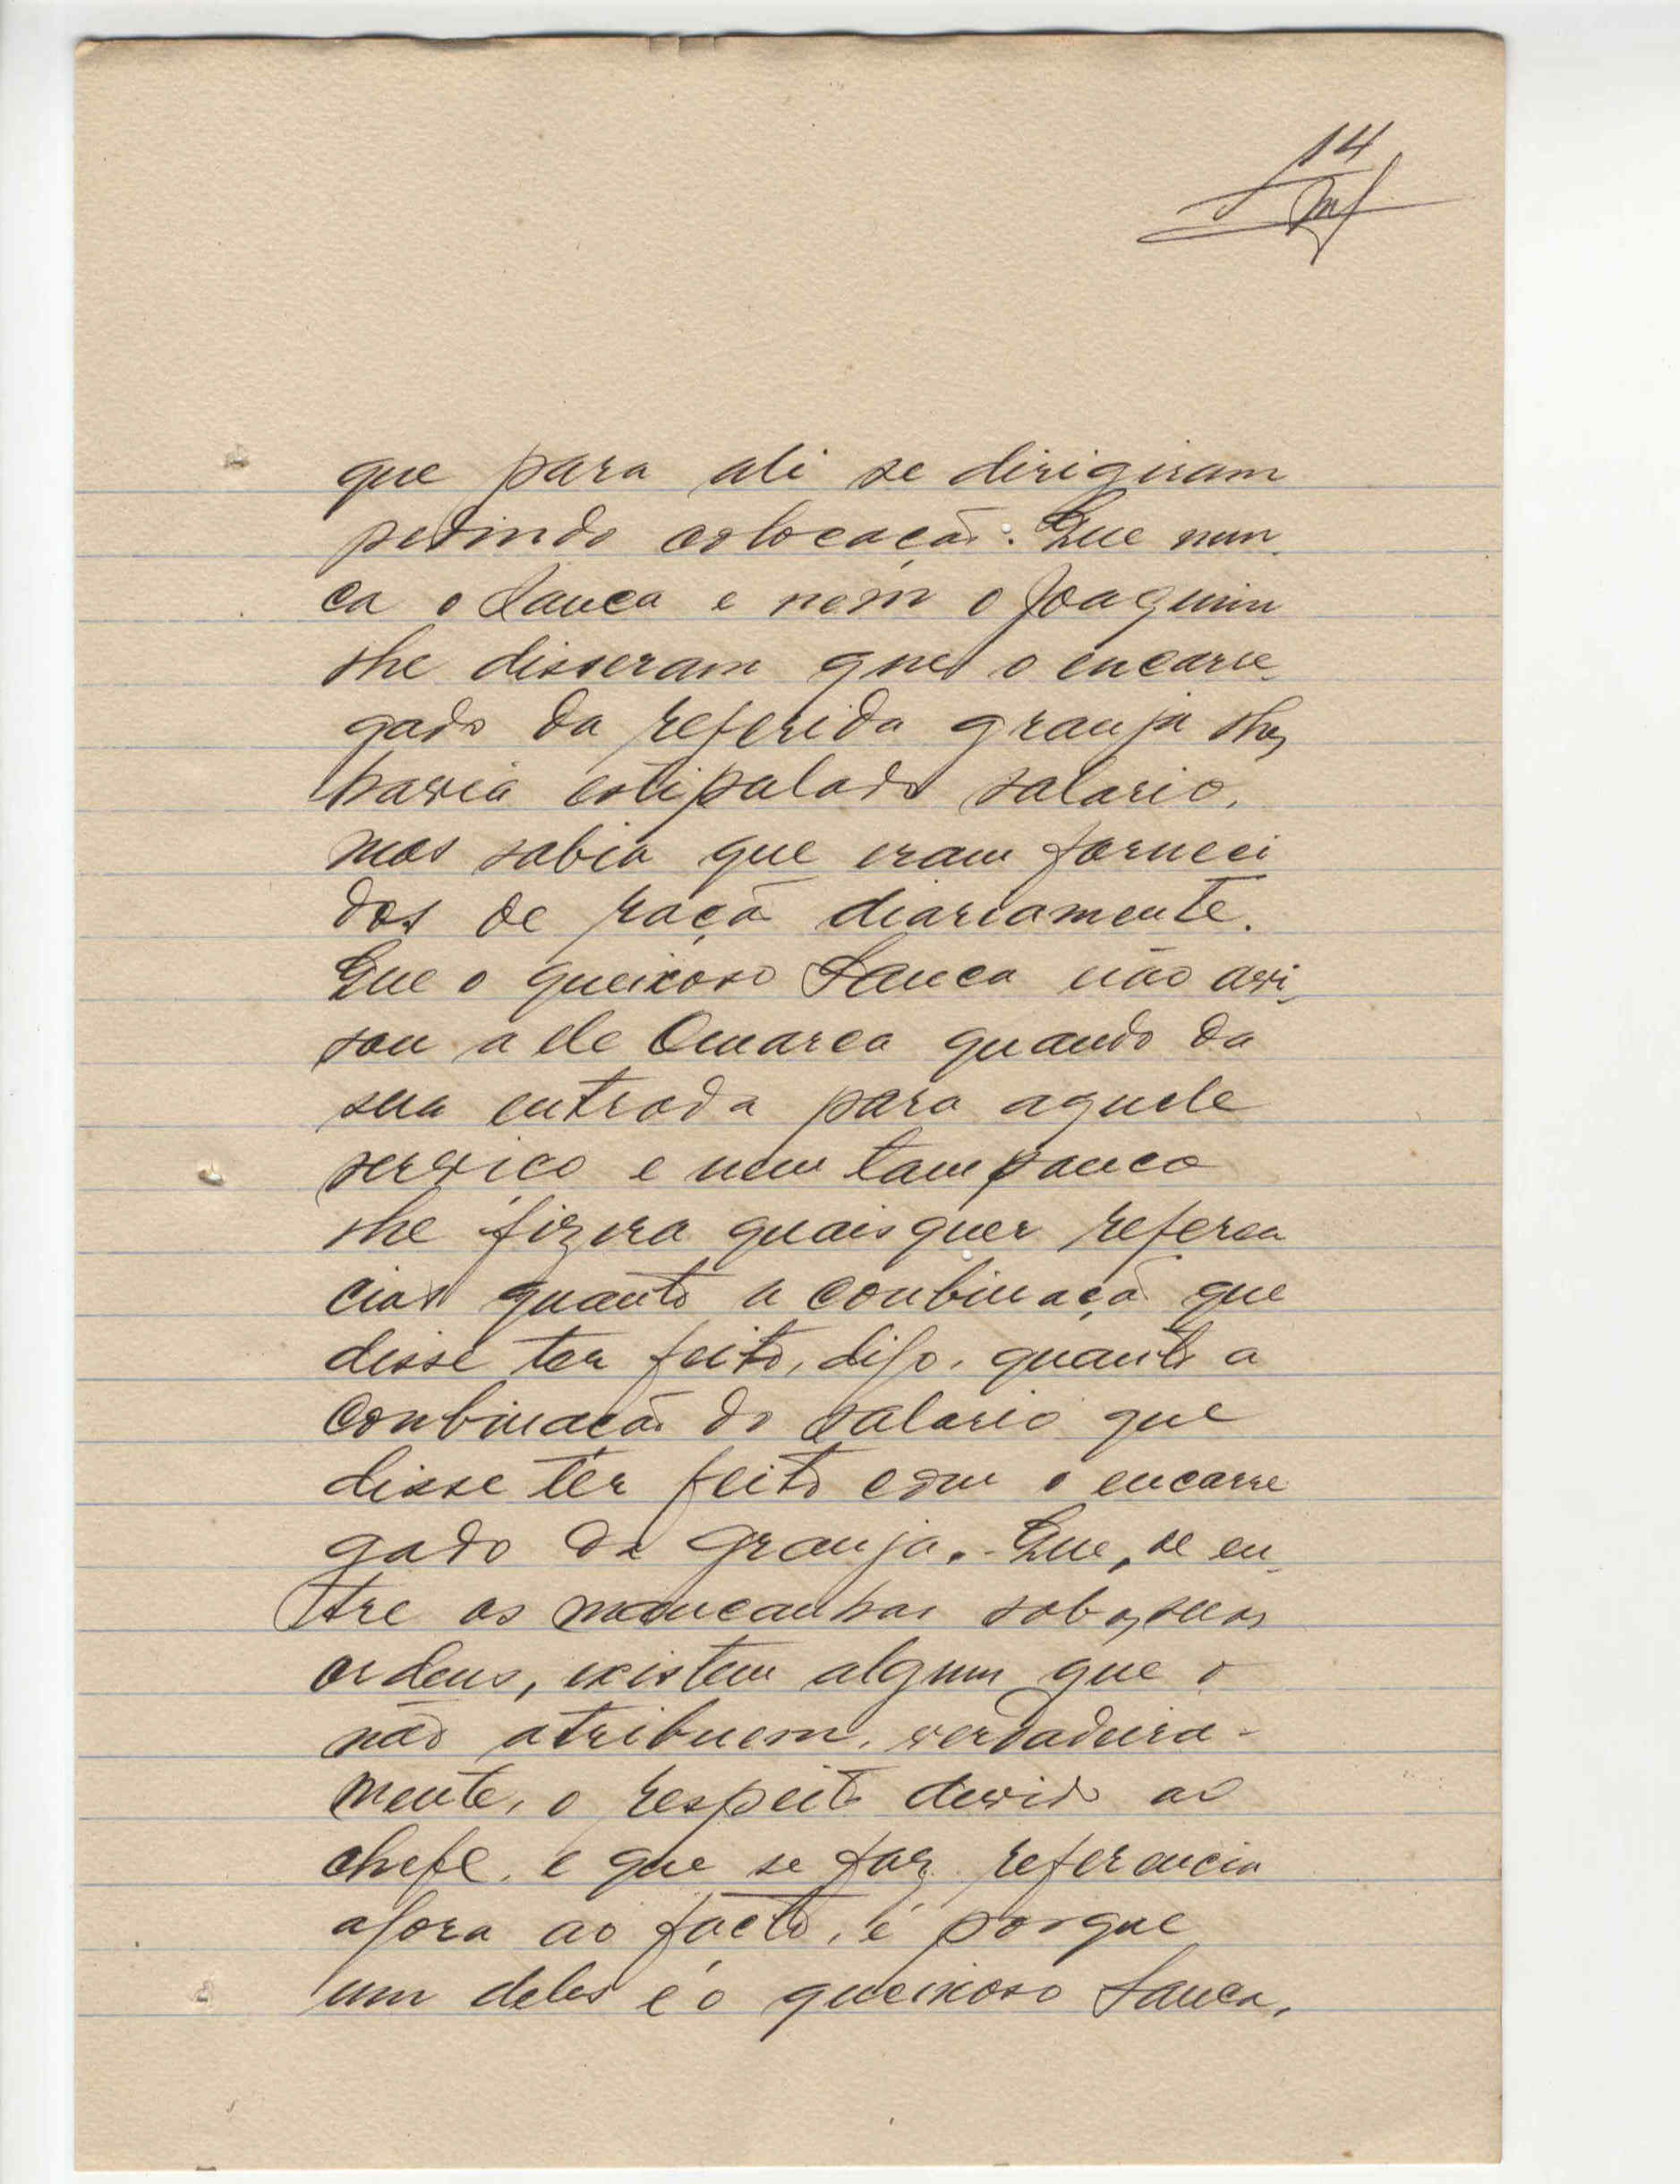 14
que para ali se dirigiram
pedindo colocação. Que nun-
ca o Sanca e nem o Joaquim
lhe disseram que o encarre-
gado da referida granja lhes
havia estipalado salario,
mas sabia que eram forneci
dos de ração diariamente.
Que o queixoso Sanca não avi-
sou a ele Quarea quando da
sua entrada para aquele
serviço e nem tampouco
lhe fizera quaisquer referen
cias quanto a conbinação que
disse ter feito, digo, quanto a
conbinação do salario que
disse ter feito com o encarre
gado da granja. Que, se en-
tre os mancanhas sob as suas
ordens, existem algum que o
não atribuem, verdadeira-
mente, o respeito devido ao
chefe, e que se faz referencia
agora ao facto, é porque
um deles é o queixoso Sanca,